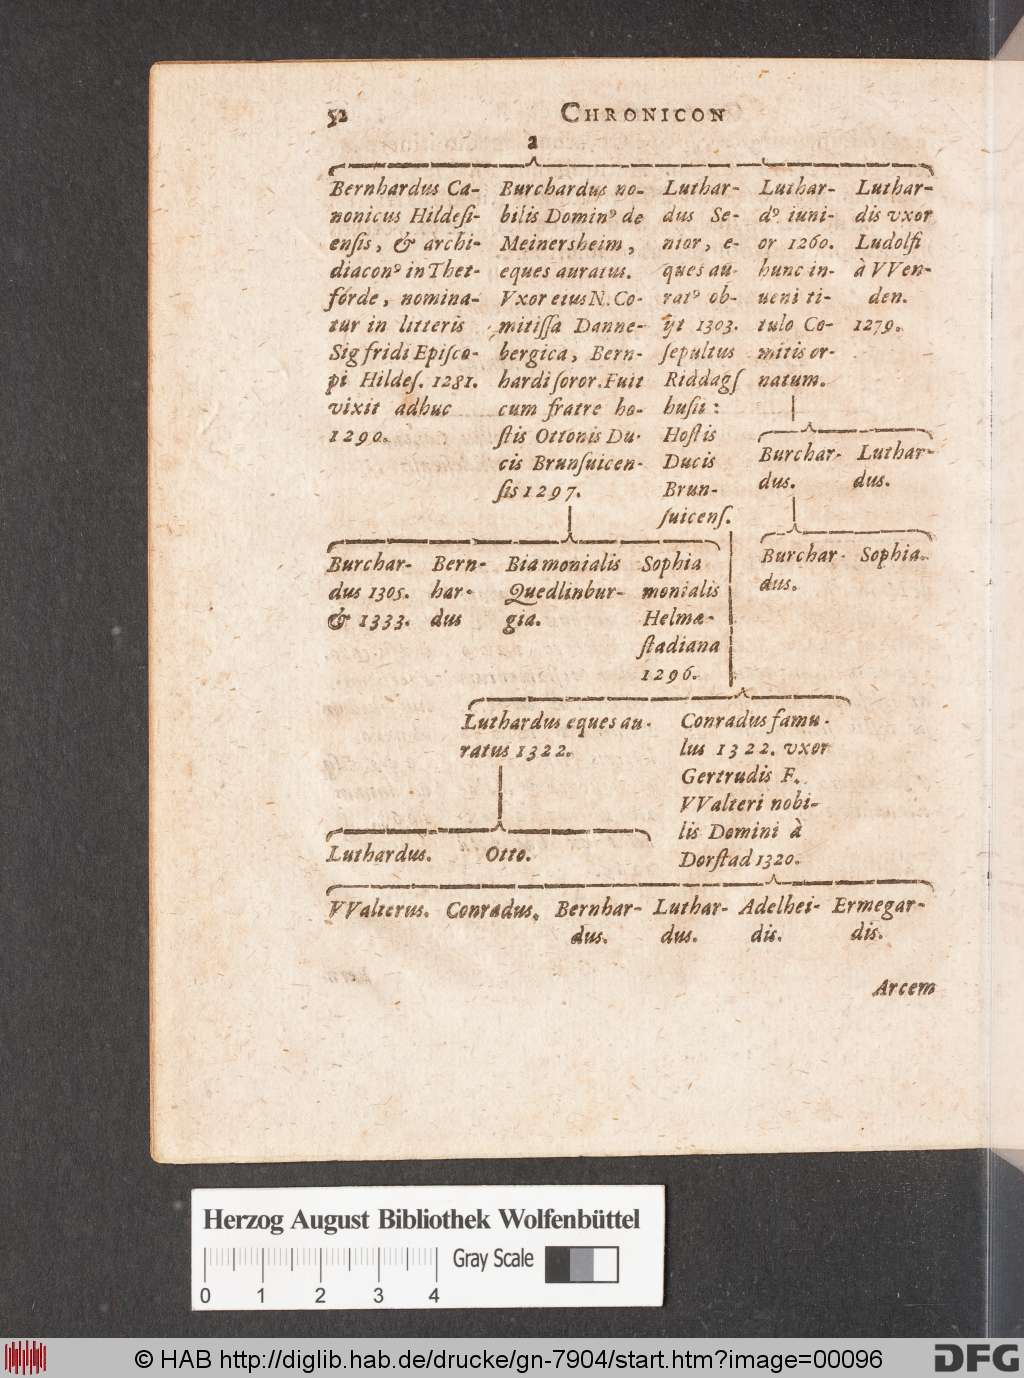 52
CHRONICON
a
Bernhardus Ca-
nonicus Hildesi-
ensis, & archi-
diacon⁹ in Thet-
forde, nomina-
tur in litteris
Sigfridi Episco-
pi Hildes. 1281.
vixit adhuc
1290.
Burchardus no-
bilis Domin⁹ de
Meinersheim,
eques auratus.
Vxor eius N. Co-
mitissa Danne-
bergica, Bern-
hardi soror. Fuit
cum fratre ho-
stis Ottonis Du-
cis Brunsuicen-
sis 1297.
Luthar-
dus Se-
nior, e-
ques au-
rat⁹ ob-
ijt 1303.
sepultus
Riddags
husii:
Hostis
Ducis
Brun-
suicens.
Luthar-
d⁹ iuni-
or 1260.
hunc in-
ueni ti-
tulo Co-
mitis or-
natum.
Luthar-
dis vxor
Ludolfi
à VVen-
den.
1279.
Burchar-
dus.
Luthar-
dus.
Burchar-
dus.
Sophia.
Burchar-
dus 1305.
& 1333.
Bern-
har-
dus
Bia monialis
Quedlinbur-
gia.
Sophia
monialis
Helmæ-
stadiana
1296.
Luthardus eques au-
ratus 1322.
Conradus famu-
lus 1322. vxor
Gertrudis F.
VValteri nobi-
lis Domini à
Dorstad 1320.
Luthardus.
Otto.
VValterus.
Conradus.
Bernhar-
dus.
Luthar-
dus.
Adelhei-
dis.
Ermegar-
dis.
Arcem
Herzog August Bibliothek Wolfenbüttel
Gray Scale
0 1 2 3 4
© HAB http://diglib.hab.de/drucke/gn-7904/start.htm?image=00096
DFG